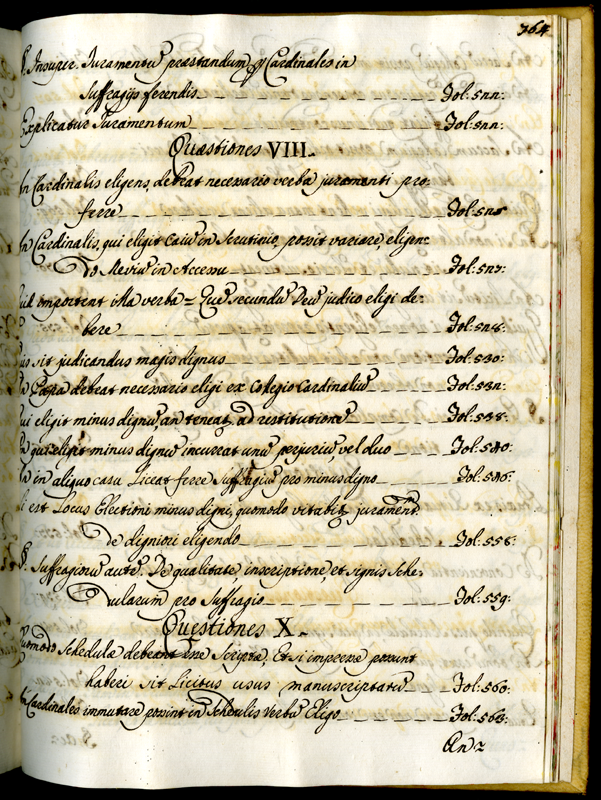 364
§. Insurir. Juramentū præstandum ꝑ Cardinales in
suffragijs ferendis Fol: 5nn:
Explicatur Juramentum Fol: 5nn:
Quæstiones VIII.
An Cardinalis eligens, debeat necessario verba juramenti pro-
ferre Fol: 5n5
An Cardinalis, qui eligit Caiū in Scrutinio, possit variare, eligen-
do Meviū in Accessu Fol: 5n7:
Quid importent illa verba = Quē secundū Deū judico eligi de-
bere Fol: 5n8:
sit judicandus magis dignus Fol: 530:
An Papa debeat necessario eligi ex Colegio Cardinaliū Fol: 53n:
Qui eligit minus dignū, an teneat ad restitutionē Fol: 538:
An qui eligit minus dignū incurrat unū perjuriū, vel duo Fol: 540:
An in aliquo casu Liceat ferre Suffragiū pro minus digno Fol: 546:
Si est Locus Electioni minus digni, quomodo vitabit juramentm̄
de digniori eligendo Fol: 558:
§. Suffragiorū autē. De qualitate, inscriptione, et signis Sche-
dularum pro Suffragio Fol: 559:
Quæstiones X.
Quomodo Schedulæ debeant esse Scriptæ, Et si impressæ possunt
haberi sit Licitus usus manuscriptarū Fol: 560:
An Cardinales immutare possint in Schedulis Verbū Eligo Fol: 563:
An 2